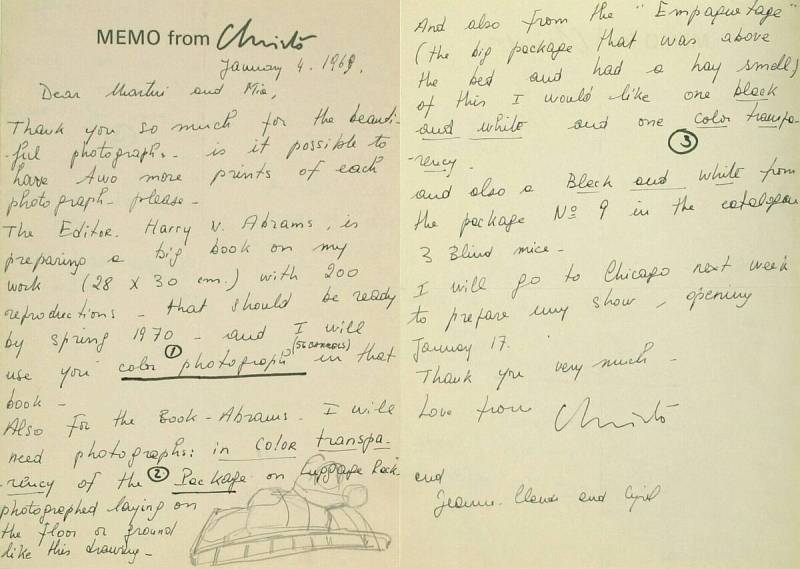 MEMO from Christo
January 4. 1969.
Dear Martin and Mia,
Thank you so much for the beauti-
-ful photographs. is it possible to
have two more prints of each
photograph - please -
The Editor. Harry N. Abrams, is
preparing a big book on my
work (28 x 30 cm.) with 200
reproductions - that should be ready
by spring 1970 - and I will
(56 BARRELS)
use your color ① photograph in that
book -
Also for the Book - Abrams - I will
need photographs: in color transpa-
-rency of the ② Package on Luggage Rack
photographed laying on
the floor or ground
like this drawing -
And also from the "Empaquetage"
(the big package that was above
the bed and had a hay smell)
of this I would like one black
and white and one color transpa-
③
-rency -
and also a Black and white from
the package Nº 9 in the catalogue
3 Blind mice -
I will go to Chicago next week
to prepare my show, opening
January 17.
Thank you very much -
Love from Christo
and
Jeanne-Claude and Cyril